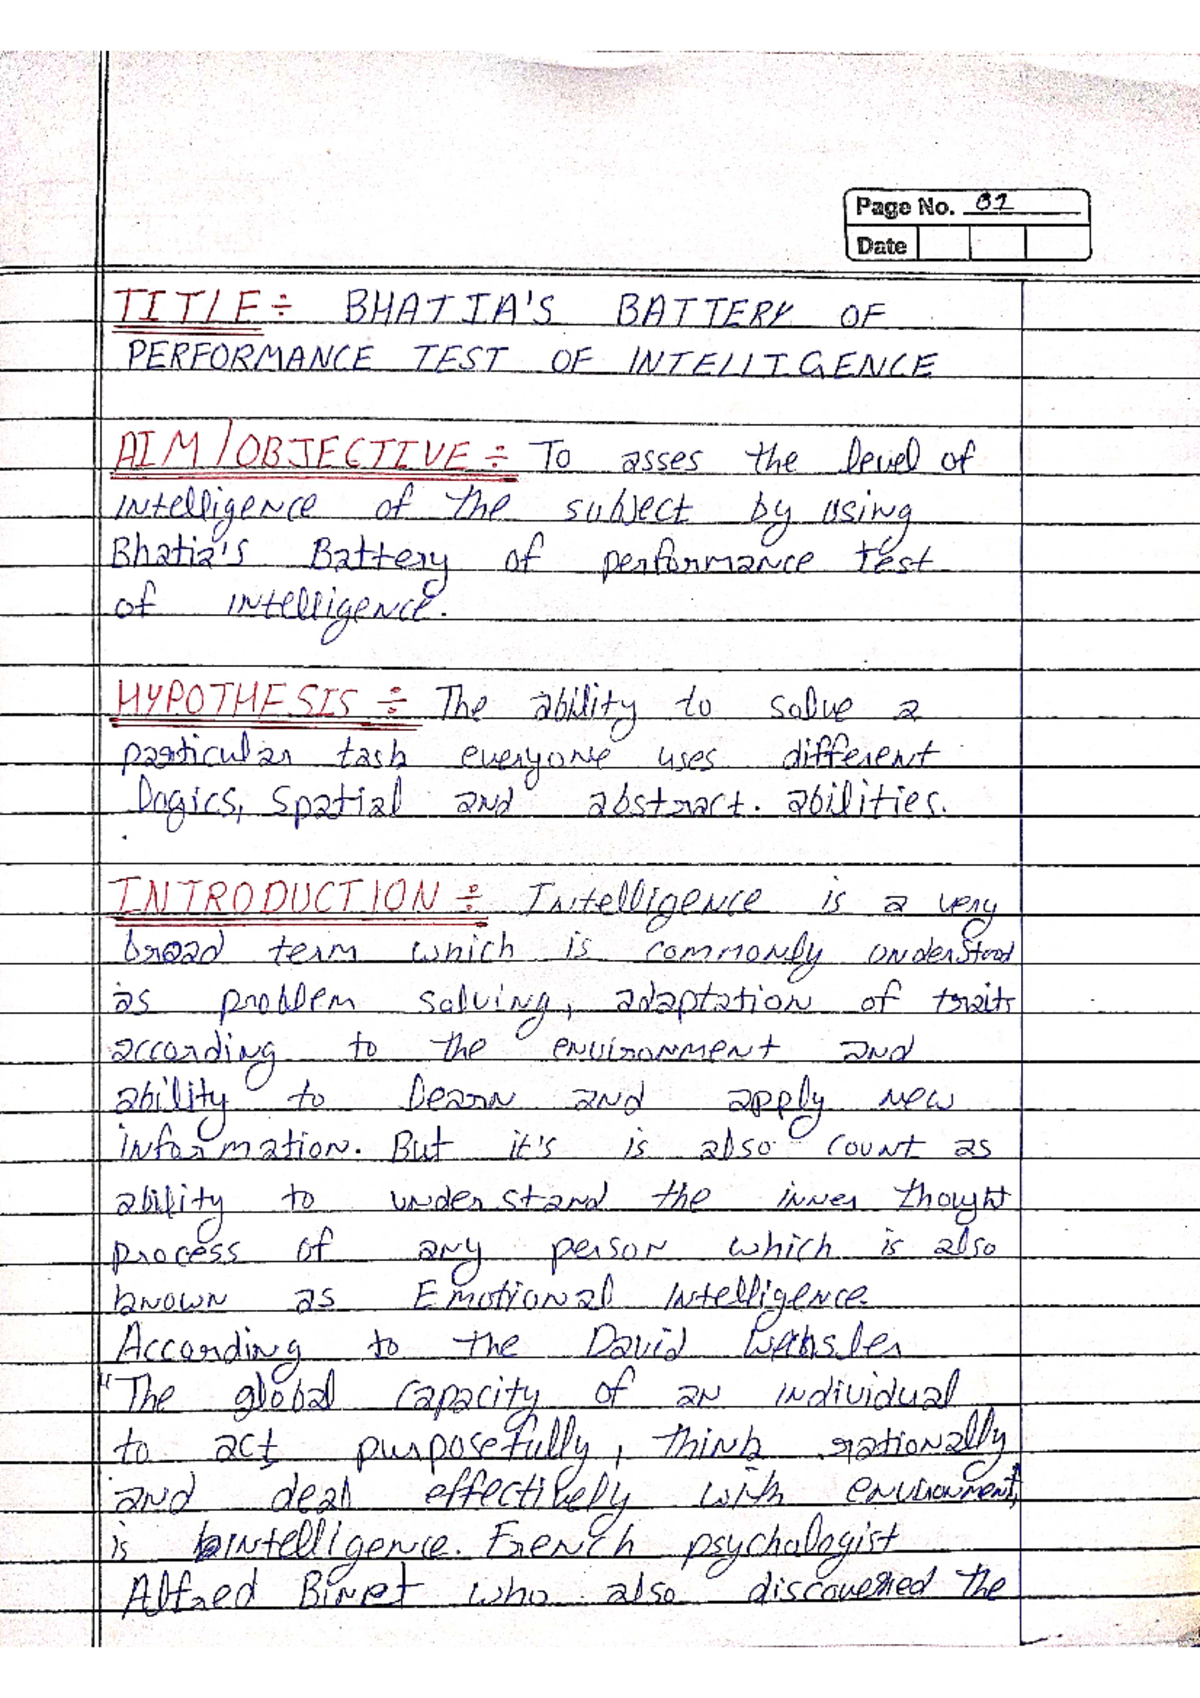 Page No. 01
Date
TITLE÷ BHATIA'S BATTERY OF
PERFORMANCE TEST OF INTELLIGENCE
AIM/OBJECTIVE÷ To asses the level of
intelligence of the subject by using
Bhatia's Battery of performance test
of intelligence.
HYPOTHESIS÷ The ability to solve a
particular task everyone uses different
logics, spatial and abstract. abilities.
INTRODUCTION÷ Intelligence is a very
broad term which is commonly understood
as problem solving, adaptation of traits
according to the environment and
ability to learn and apply new
information. But it's is also count as
ability to understand the inner thought
process of any person which is also
known as Emotional intelligence.
According to the David
"The global capacity of an individual
to act purposefully, think rationally
and deal effectively with environment,
is intelligence. French psychologist
Alfred Binet who also discovered the